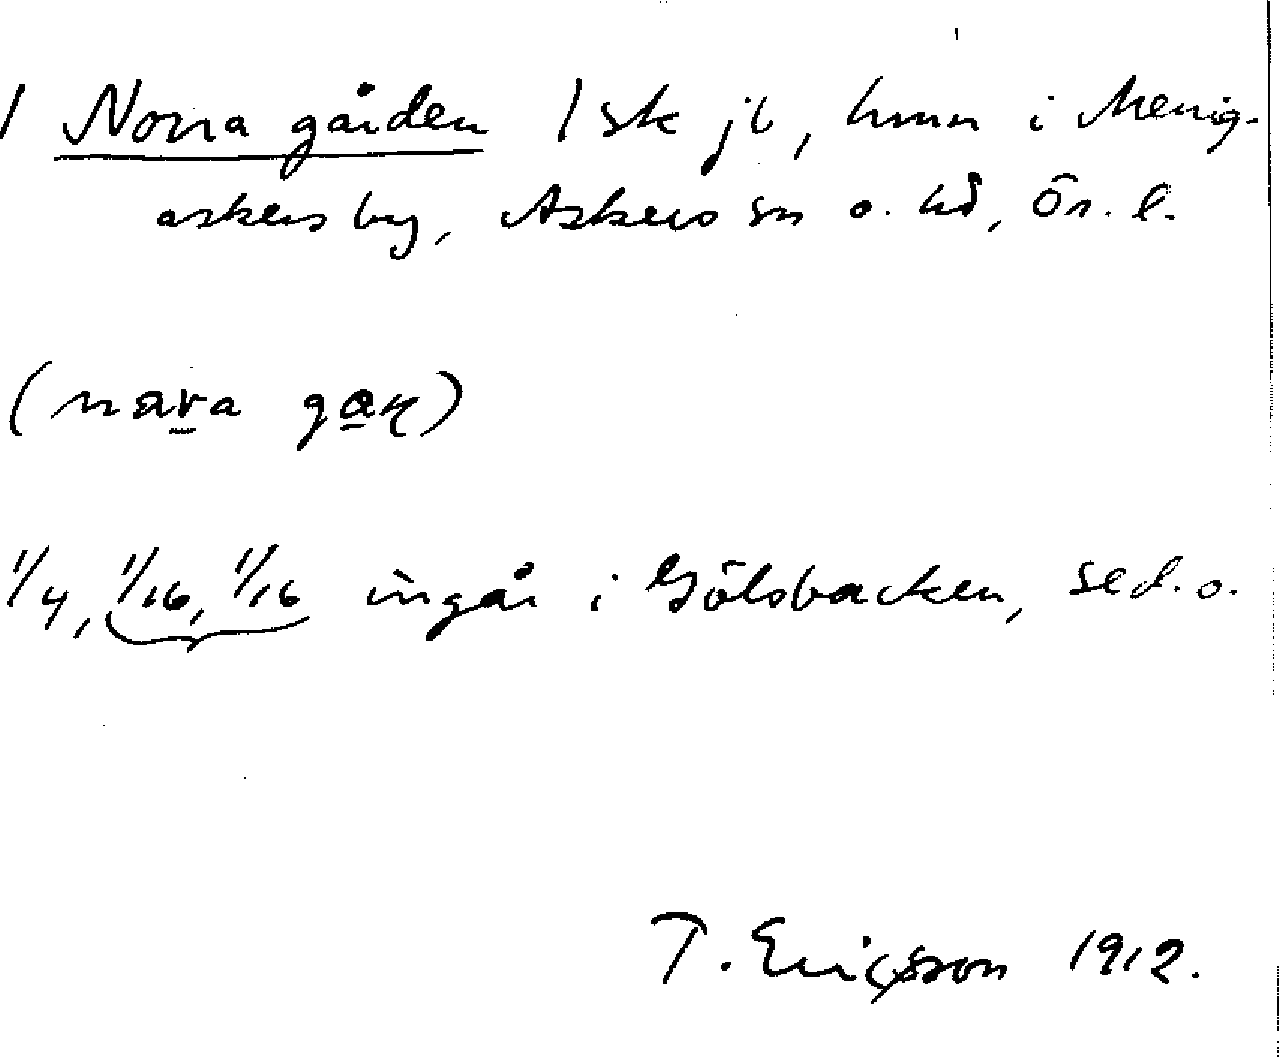 1 Norra gården 1 sk jb, hmn i Menig-
askers by, Askers sn o. hd, Ör. l.
(nara gaɳ)
1/4, 1/16, 1/16 ingår i Gölsbacken, se d. o.
T. Ericsson 1912.